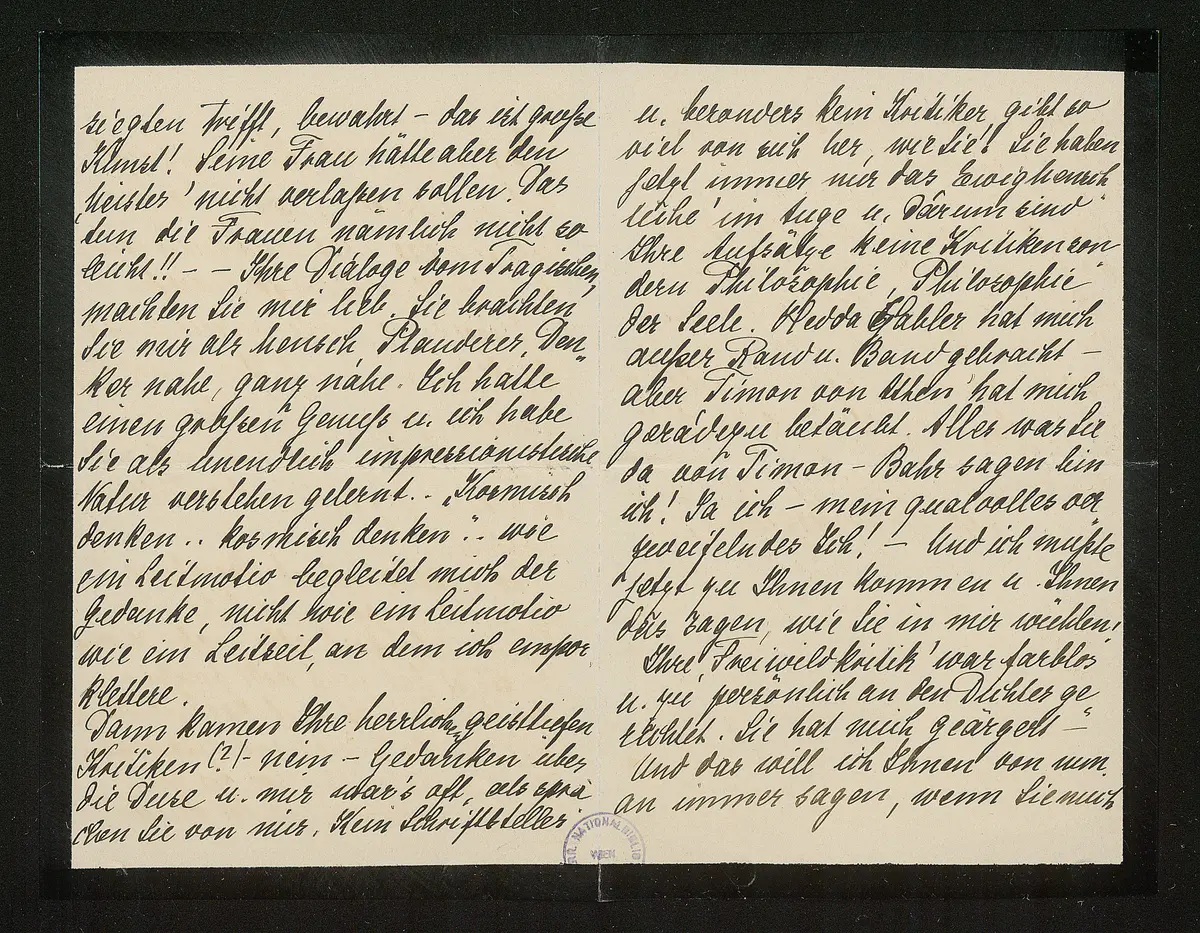 siegten trifft, bewahrt – das ist große
Kunst! Seine Frau hätte aber den
‚Meister' nicht verlaßen sollen. Das
tun die Frauen nämlich nicht so
leicht!! – – Ihre Dialoge vom Tragischen,
machten Sie mir lieb. Sie brachten
Sie mir als Mensch, Plauderer, Den„
ker nahe, ganz nahe. Ich hatte
einen großen Genuß u. ich habe
Sie als unendlich impressionistische
Natur verstehen gelernt. . „Kosmisch
denken . . kosmisch denken" . . wie
ein Leitmotiv begleitet mich der
Gedanke, nicht wie ein Leitmotiv
wie ein Leitseil, an dem ich empor
klettere.
Dann kamen Ihre herrlich-geisttiefen
Kritiken (?) – nein – Gedanken über
die Duse u. mir war's oft, als sprä
chen Sie von mir. Kein Schriftsteller
u. besonders kein Kritiker gibt so
viel von sich her, wie Sie! Sie haben
jetzt immer nur das Ewigmensch
liche im Auge u. darum sind
Ihre Aufsätze keine Kritiken son„
dern Philosophie, Philosophie
der Seele. Hedda Gabler hat mich
außer Rand u. Band gebracht –
aber Timon von Athen hat mich
geradezu betäubt. Alles was Sie
da von Timon – Bahr sagen bin
ich! Ja ich – mein qualvolles ver
zweifelndes Ich! – Und ich müßte
jetzt zu Ihnen kommen u. Ihnen
das sagen, wie Sie in mir wühlen!
Ihre ‚Freiwildkritik' war farblos
u. zu persönlich an den Dichter ge
richtet. Sie hat mich geärgert –
Und das will ich Ihnen von nun
an immer sagen, wenn Sie mich
NATIONALBIBLIO
WIEN